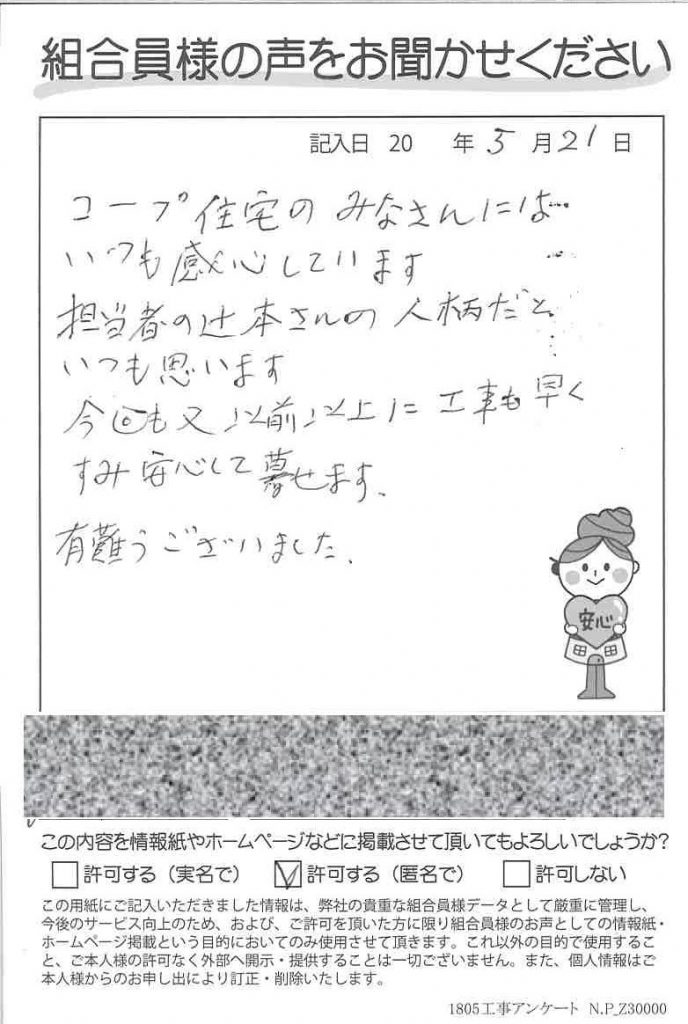 組合員様の声をお聞かせください
記入日 20 年 5 月 21 日
コープ住宅のみなさんには
いつも感心しています
担当者の辻本さんの人柄だと
いつも思います
今回も又以前以上に工事も早く
すみ安心して暮せます、
有難うございました、
安心
この内容を情報紙やホームページなどに掲載させて頂いてもよろしいでしょうか?
許可する（実名で） 許可する（匿名で） 許可しない
この用紙にご記入いただきました情報は、弊社の貴重な組合員様データとして厳重に管理し、
今後のサービス向上のため、および、ご許可を頂いた方に限り組合員様のお声としての情報紙・
ホームページ掲載という目的においてのみ使用させて頂きます。これ以外の目的で使用するこ
と、ご本人様の許可なく外部へ開示・提供することは一切ございません。また、個人情報はご
本人様からのお申し出により訂正・削除いたします。
1805工事アンケート N.P_Z30000